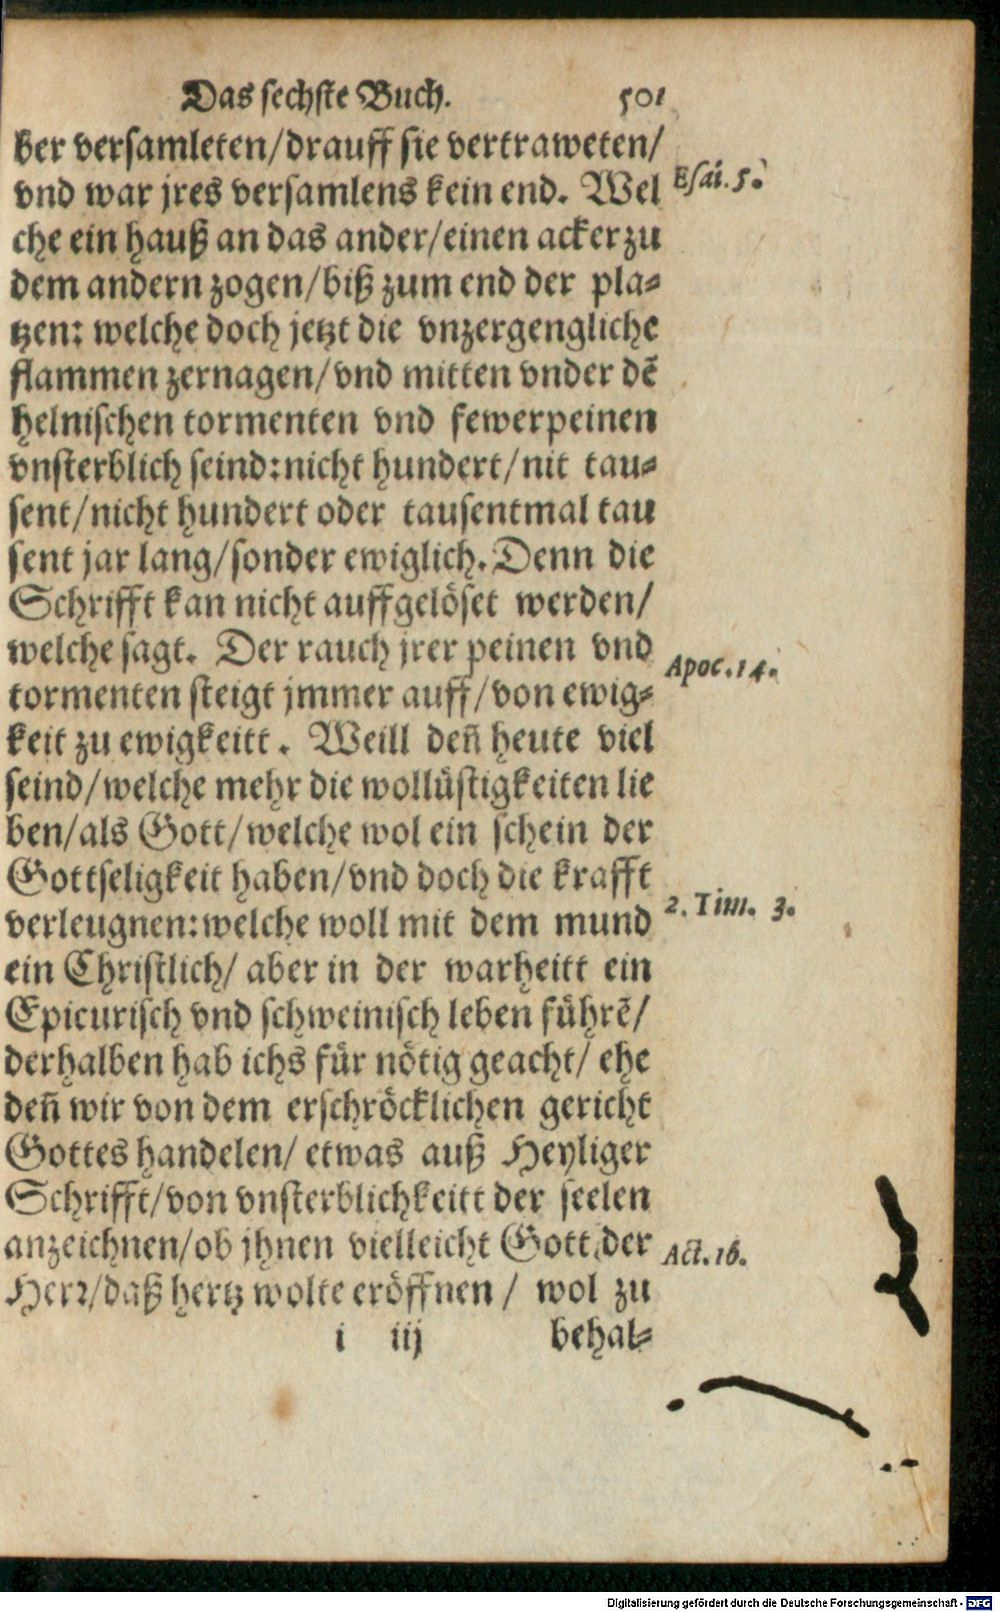 Das sechste Buch. 501
ber versamleten/drauff sie vertraweten/
vnd war jres versamlens kein end. Wel Esai. 5.
che ein hauß an das ander/einen acker zu
dem andern zogen/biß zum end der pla-
tzen: welche doch jetzt die vnzergengliche
flammen zernagen/vnd mitten vnder dē
helnischen tormenten vnd fewerpeinen
vnsterblich seind:nicht hundert/nit tau-
sent/nicht hundert oder tausentmal tau
sent jar lang/sonder ewiglich. Denn die
Schrifft kan nicht auffgelöset werden/
welche sagt. Der rauch jrer peinen vnd Apoc. 14.
tormenten steigt jmmer auff/von ewig-
keit zu ewigkeitt. Weill deñ heute viel
seind/welche mehr die wollüstigkeiten lie
ben/als Gott/welche wol ein schein der
Gottseligkeit haben/vnd doch die krafft
verleugnen:welche woll mit dem mund 2. Tim. 3.
ein Christlich/ aber in der warheitt ein
Epicurisch vnd schweinisch leben führē/
derhalben hab ichs für nötig geacht/ ehe
deñ wir von dem erschröcklichen gericht
Gottes handelen/ etwas auß Heyliger
Schrifft/von vnsterblichkeitt der seelen
anzeichnen/ob jhnen vielleicht Gott der Act. 16.
Herr/daß hertz wolte eröffnen/ wol zu
i iij behal-
Digitalisierung gefördert durch die Deutsche Forschungsgemeinschaft - DFG